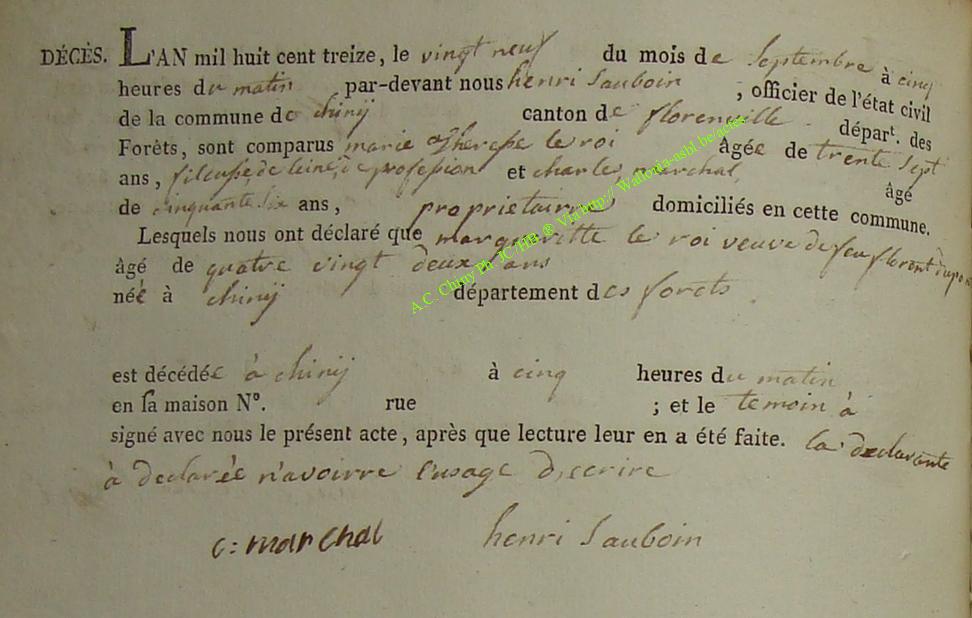 DÉCÈS. L'AN mil huit cent treize, le vingt neuf du mois de Septembre à cinq
heures du matin par-devant nous henri Sauboin ; officier de l'état civil
de la commune de chinÿ canton de florenville départ. des
Forêts, sont comparus marie therese le roi âgée de trente sept
ans, fileusse de leine de profession et charle marchal, âgé
de cinquante six ans, proprietaire domiciliés en cette commune.
Lesquels nous ont déclaré que margueritte le roi veuve de feu florent
âgé de quatre vingt deux ans
néé à chinÿ département des forets
est décédée à chinÿ à cinq heures du matin
en sa maison N°. rue ; et le temoin à
signé avec nous le présent acte, après que lecture leur en a été faite. la declarante
à declarée n'avoirre l'usage d'ecrire
c: marchal henri Sauboin
A.C. Chiny Ph. JC/HB ® Via http:// Wallonia-asbl.be/actes